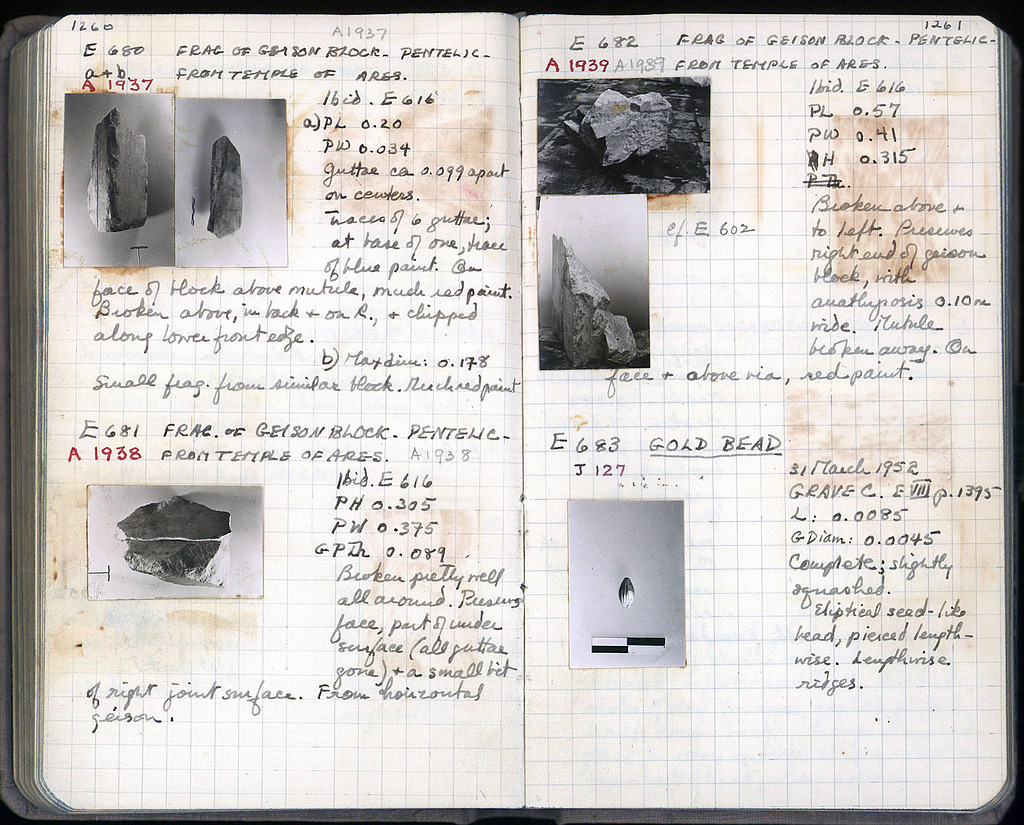 1260
A1937
E 680 FRAG OF GEISON BLOCK - PENTELIC -
a+b. FROM TEMPLE OF ARES.
A 1937
Ibid. E 616
a) PL 0.20
PW 0.034
Guttae ca 0.099 apart
on centers.
Traces of 6 guttae;
at base of one, trace
of blue paint. On
face of block above mutule, much red paint.
Broken above, in back + on R., + chipped
along lower front edge.
b) Max dim: 0.178
Small frag. from similar block. Much red paint
E 681 FRAG. OF GEISON BLOCK - PENTELIC -
A 1938 FROM TEMPLE OF ARES. A1938
Ibid. E 616
PH 0.305
PW 0.375
G P Th 0.089
Broken pretty well
all around. Preserves
face, part of under
surface (all guttae
gone) + a small bit
of right joint surface. From horizontal
geison.
1261
E 682 FRAG OF GEISON BLOCK - PENTELIC -
A 1939 A1939 FROM TEMPLE OF ARES.
Ibid. E 616
PL 0.57
PW 0.41
H 0.315
P Th.
Broken above +
to left. Preserves
right end of geison
block, with
anathyrosis 0.10 m
wide. Mutule
broken away. On
face + above via, red paint.
cf. E 602
E 683 GOLD BEAD
J 127
31 March 1952
GRAVE C. E VIII p. 1395
L: 0.0085
G Diam: 0.0045
Complete; slightly
squashed.
Eliptical seed-like
bead, pierced length-
wise. Lengthwise
ridges.